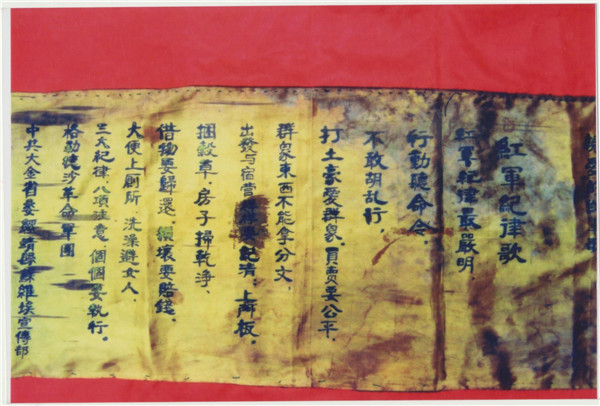 紅軍紀律歌
紅軍紀律最嚴明，
行動聽命令，
不敢胡乱行，
打土豪愛群衆，買賣要公平，
群衆東西不能拿分文，
出發与宿营 記清，上門板，
捆穀草，房子掃乾淨，
借物要歸還，損壞要賠錢，
大便上厠所，洗澡避女人，
三大紀律八項注意，個個要執行。
格勒德沙革命軍團
中共大金省委 宣傳部